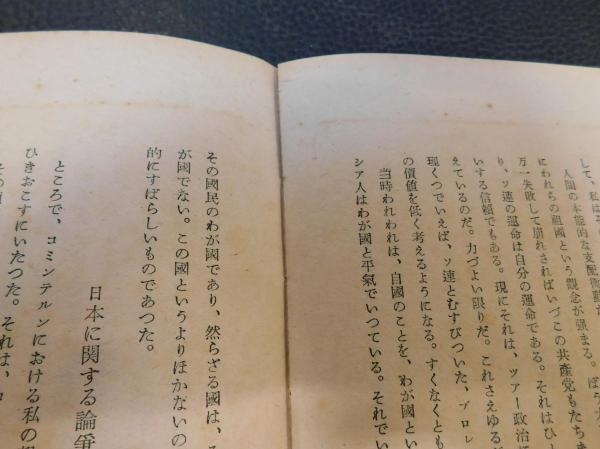 して、私はそ
人間の本能的な支配衝動が
にわれらの祖國という觀念が强まる。ぼう大
万一失敗して崩れさればいづこの共産党もたちま
り、ソ連の運命は自分の運命である。それはひと
いする信頼でもある。現にそれは、ツアー政治に
えているのだ。力づよい限りだ。これさえゆるが
理くつでいえば、ソ連とむすびついた、プロレ
の價値を低く考えるようになる。すくなくとも
当時われわれは、自國のことを、わが國とい
シア人はわが國と平氣でいつている。それでい
その國民のわが國であり、然らざる國は、
が國でない。この國というよりほかないの
的にすばらしいものであつた。
日本に関する論爭
ところで、コミンテルンにおける私の
ひきおこすにいたつた。それは、コ
その